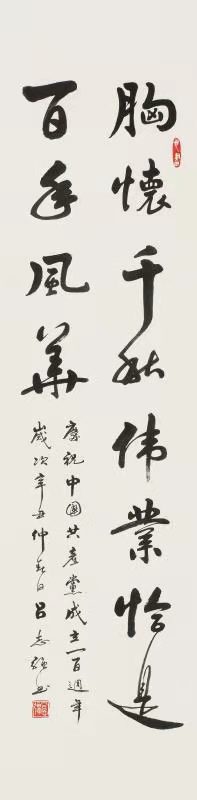 胸懷千秋伟業恰是
百年風華
慶祝中國共産黨成立一百週年
歲次辛丑仲春日呂志強书